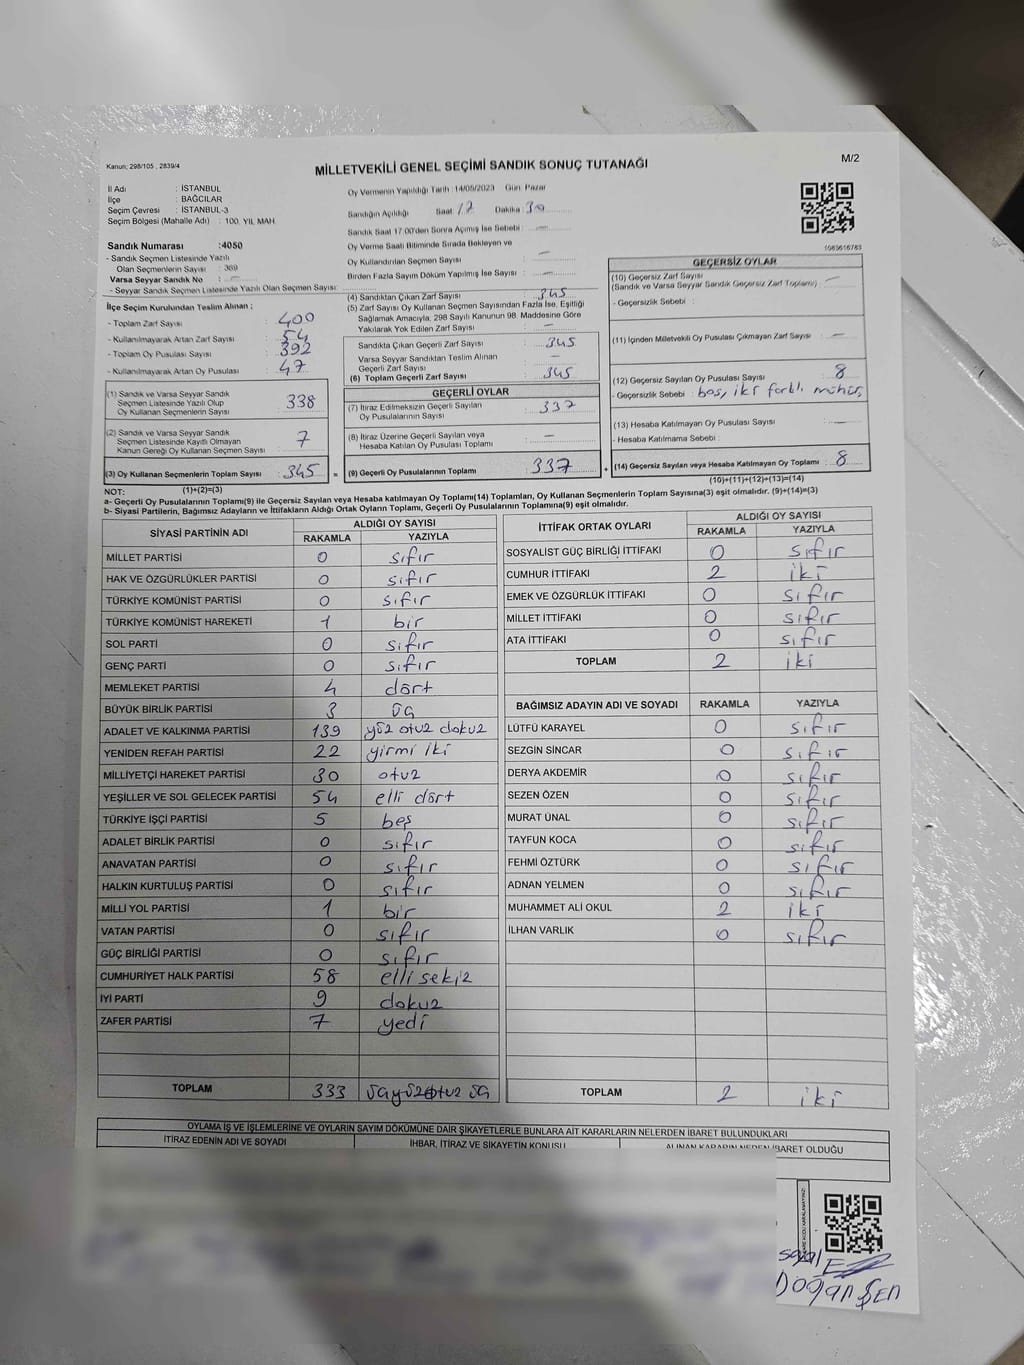 Kanun; 298/105 , 2839/4
MİLLETVEKİLİ GENEL SEÇİMİ SANDIK SONUÇ TUTANAĞI
M/2
İl Adı : İSTANBUL
İlçe : BAĞCILAR
Seçim Çevresi : İSTANBUL-3
Seçim Bölgesi (Mahalle Adı) : 100. YIL MAH.
Sandık Numarası :4050
- Sandık Seçmen Listesinde Yazılı
Olan Seçmenlerin Sayısı : 369
Varsa Seyyar Sandık No : —
- Seyyar Sandık Seçmen Listesinde Yazılı Olan Seçmen Sayısı:
Oy Vermenin Yapıldığı Tarih : 14/05/2023 Gün: Pazar
Sandığın Açıldığı Saat 17 Dakika : 30
Sandık Saat 17.00'den Sonra Açımış İse Sebebi : —
Oy Verme Saati Bitiminde Sırada Bekleyen ve
Oy Kullandırılan Seçmen Sayısı : —
Birden Fazla Sayım Döküm Yapılmış İse Sayısı : —
1083616763
İlçe Seçim Kurulundan Teslim Alınan ;
- Toplam Zarf Sayısı : 400
- Kullanılmayarak Artan Zarf Sayısı : 54
- Toplam Oy Pusulası Sayısı : 392
- Kullanılmayarak Artan Oy Pusulası : 47
(1) Sandık ve Varsa Seyyar Sandık
Seçmen Listesinde Yazılı Olup
Oy Kullanan Seçmenlerin Sayısı 338
(2) Sandık ve Varsa Seyyar Sandık
Seçmen Listesinde Kayıtlı Olmayan
Kanun Gereği Oy Kullanan Seçmen Sayısı 7
(3) Oy Kullanan Seçmenlerin Toplam Sayısı 345
(4) Sandıktan Çıkan Zarf Sayısı : 345
(5) Zarf Sayısı Oy Kullanan Seçmen Sayısından Fazla İse, Eşitliği
Sağlamak Amacıyla; 298 Sayılı Kanunun 98. Maddesine Göre
Yakılarak Yok Edilen Zarf Sayısı : —
Sandıkta Çıkan Geçerli Zarf Sayısı : 345
Varsa Seyyar Sandıktan Teslim Alınan
Geçerli Zarf Sayısı : —
(6) Toplam Geçerli Zarf Sayısı : 345
GEÇERLİ OYLAR
(7) İtiraz Edilmeksizin Geçerli Sayılan
Oy Pusulalarının Sayısı : 337
(8) İtiraz Üzerine Geçerli Sayılan veya
Hesaba Katılan Oy Pusulası Toplamı : —
= (9) Geçerli Oy Pusulalarının Toplamı : 337
GEÇERSİZ OYLAR
(10) Geçersiz Zarf Sayısı
(Sandık ve Varsa Seyyar Sandık Geçersiz Zarf Toplamı) : —
- Geçersizlik Sebebi :
(11) İçinden Milletvekili Oy Pusulası Çıkmayan Zarf Sayısı : —
(12) Geçersiz Sayılan Oy Pusulası Sayısı : 8
- Geçersizlik Sebebi : boş, iki farklı mühür,
(13) Hesaba Katılmayan Oy Pusulası Sayısı : —
- Hesaba Katılmama Sebebi :
+ (14) Geçersiz Sayılan veya Hesaba Katılmayan Oy Toplamı : 8
NOT: (1)+(2)=(3)
(10)+(11)+(12)+(13)=(14)
a- Geçerli Oy Pusulalarının Toplamı(9) ile Geçersiz Sayılan veya Hesaba katılmayan Oy Toplamı(14) Toplamları, Oy Kullanan Seçmenlerin Toplam Sayısına(3) eşit olmalıdır. (9)+(14)=(3)
b- Siyasi Partilerin, Bağımsız Adayların ve İttifakların Aldığı Ortak Oyların Toplamı, Geçerli Oy Pusulalarının Toplamına(9) eşit olmalıdır.
SİYASİ PARTİNİN ADI ALDIĞI OY SAYISI
RAKAMLA YAZIYLA
MİLLET PARTİSİ 0 sıfır
HAK VE ÖZGÜRLÜKLER PARTİSİ 0 sıfır
TÜRKİYE KOMÜNİST PARTİSİ 0 sıfır
TÜRKİYE KOMÜNİST HAREKETİ 1 bir
SOL PARTİ 0 sıfır
GENÇ PARTİ 0 sıfır
MEMLEKET PARTİSİ 4 dört
BÜYÜK BİRLİK PARTİSİ 3 üç
ADALET VE KALKINMA PARTİSİ 139 yüz otuz dokuz
YENİDEN REFAH PARTİSİ 22 yirmi iki
MİLLİYETÇİ HAREKET PARTİSİ 30 otuz
YEŞİLLER VE SOL GELECEK PARTİSİ 54 elli dört
TÜRKİYE İŞÇİ PARTİSİ 5 beş
ADALET BİRLİK PARTİSİ 0 sıfır
ANAVATAN PARTİSİ 0 sıfır
HALKIN KURTULUŞ PARTİSİ 0 sıfır
MİLLİ YOL PARTİSİ 1 bir
VATAN PARTİSİ 0 sıfır
GÜÇ BİRLİĞİ PARTİSİ 0 sıfır
CUMHURİYET HALK PARTİSİ 58 elli sekiz
İYİ PARTİ 9 dokuz
ZAFER PARTİSİ 7 yedi
TOPLAM 333 üçyüzotuz üç
İTTİFAK ORTAK OYLARI ALDIĞI OY SAYISI
RAKAMLA YAZIYLA
SOSYALİST GÜÇ BİRLİĞİ İTTİFAKI 0 sıfır
CUMHUR İTTİFAKI 2 iki
EMEK VE ÖZGÜRLÜK İTTİFAKI 0 sıfır
MİLLET İTTİFAKI 0 sıfır
ATA İTTİFAKI 0 sıfır
TOPLAM 2 iki
BAĞIMSIZ ADAYIN ADI VE SOYADI RAKAMLA YAZIYLA
LÜTFÜ KARAYEL 0 sıfır
SEZGİN SİNCAR 0 sıfır
DERYA AKDEMİR 0 sıfır
SEZEN ÖZEN 0 sıfır
MURAT ÜNAL 0 sıfır
TAYFUN KOCA 0 sıfır
FEHMİ ÖZTÜRK 0 sıfır
ADNAN YELMEN 0 sıfır
MUHAMMET ALİ OKUL 2 iki
İLHAN VARLIK 0 sıfır
TOPLAM 2 iki
OYLAMA İŞ VE İŞLEMLERİNE VE OYLARIN SAYIM DÖKÜMÜNE DAİR ŞİKAYETLERLE BUNLARA AİT KARARLARIN NELERDEN İBARET BULUNDUKLARI
İTİRAZ EDENİN ADI VE SOYADI İHBAR, İTİRAZ VE ŞİKAYETİN KONUSU ALINAN KARARIN NEDEN İBARET OLDUĞU
Doğan Şen